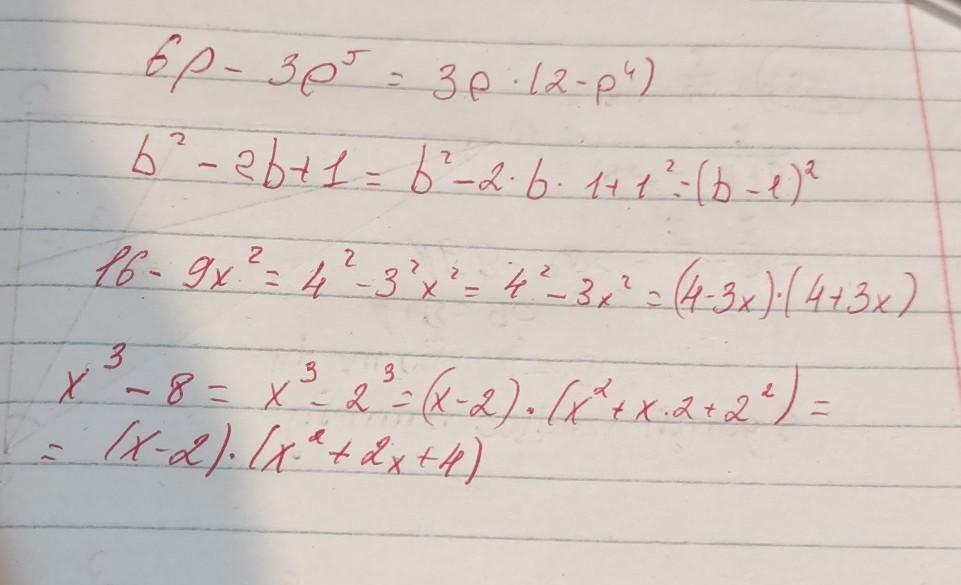 6p - 3p⁵ = 3p · (2 - p⁴)
b² - 2b + 1 = b² - 2 · b · 1 + 1² = (b - 1)²
16 - 9x² = 4² - 3²x² = 4² - 3x² = (4 - 3x) · (4 + 3x)
x³ - 8 = x³ - 2³ = (x - 2) · (x² + x · 2 + 2²) =
= (x - 2) · (x² + 2x + 4)